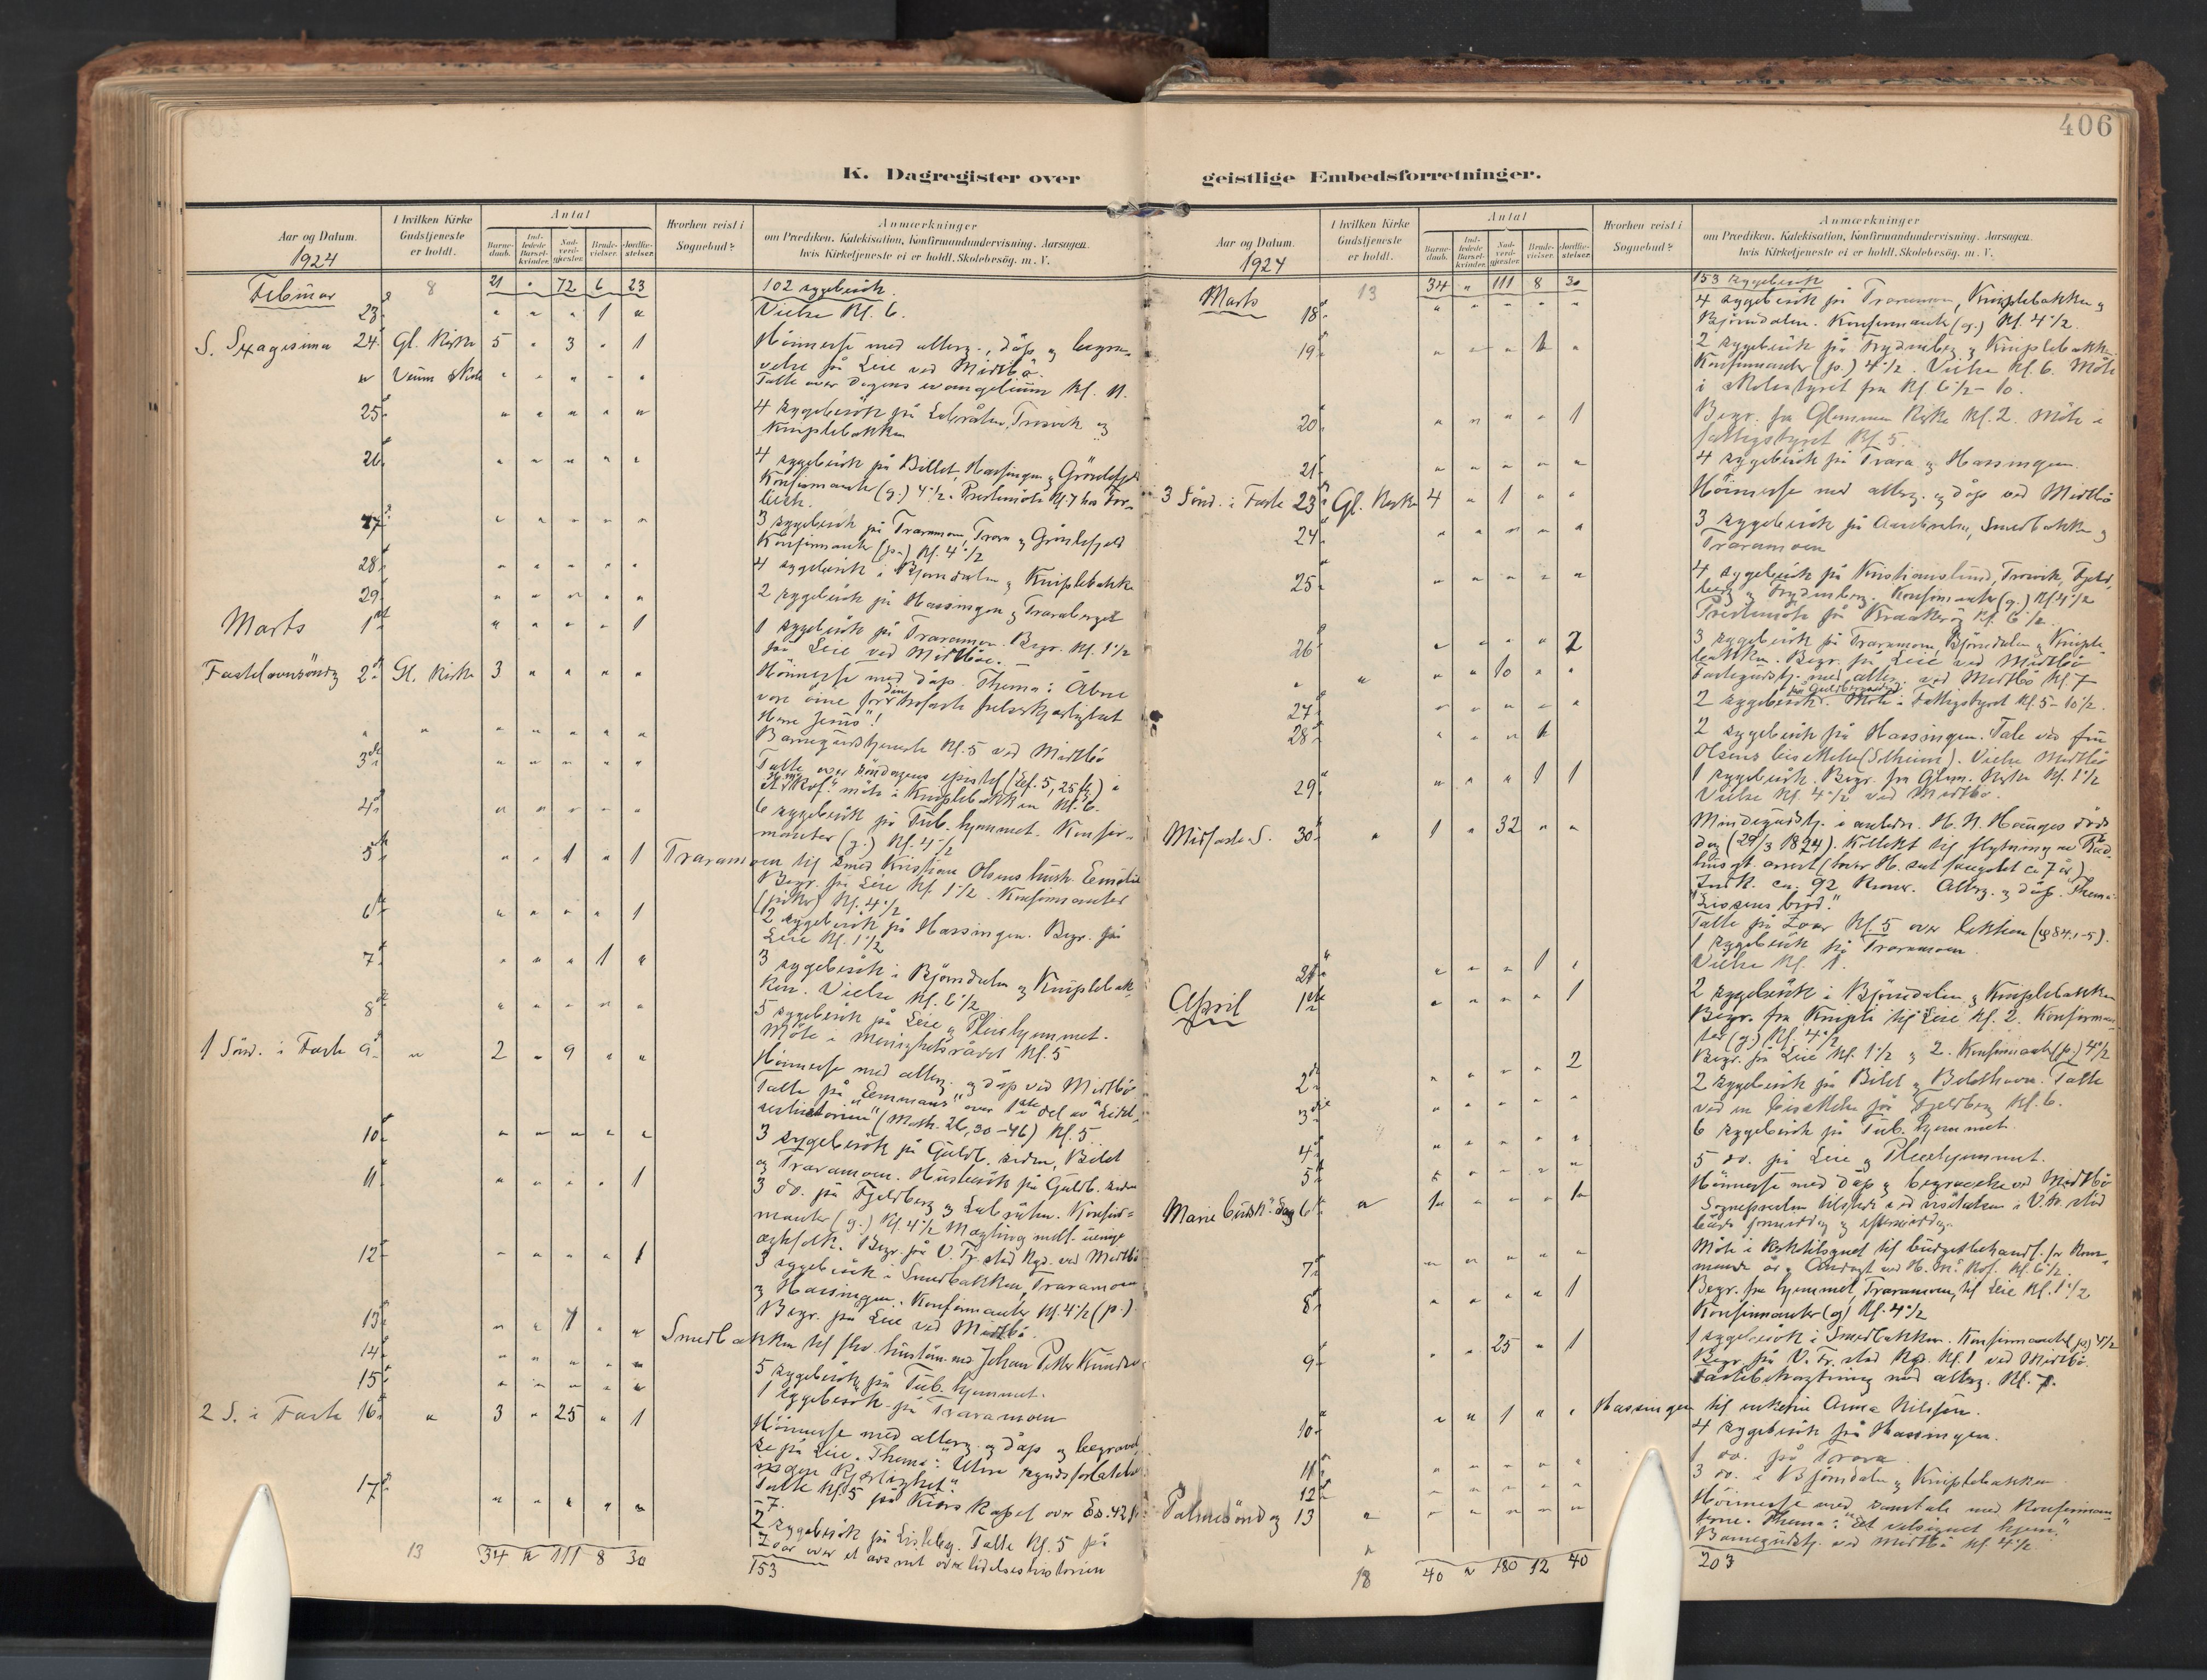 406
K. Dagregister over
geistlige Embedsforretninger.
Aar og Datum.
1924
I hvilken Kirke Gudstjeneste er holdt.
Antal
Barnedaab.
Indledede Barselkvinder.
Nadverdgjester.
Brudevielser.
Jordfæstelser.
Hvorhen reist i Sognebud?
Anmærkninger
om Prædiken, Katekisation, Konfirmandundervisning, Aarsagen,
hvis Kirketjeneste ei er holdt, Skolebesøg, m. V.
Februar 8 21 " 72 6 23 102 sygebesök.
23. " " " 1 " Vielse Kl. 6.
S. Sexagesima 24. Gl. Kirke 5 " 3 " 1 Höimesse med alterg., dåp og begra-
velse på Leie ved Midtbö.
" Veum Skole " " " " " Talte over dagens evangelium Kl. 11.
25. " " " " " 4 sygebesök på Trosvik og
Kniplebakken
26. " " " " " 4 sygebesök på Bildet, Hassingen og Grönlifjeld
Konfirmanter (g.) 4 1/2. Prestemöte Kl. 7 hos
27. " " " " " 3 sygebesök på Traramoen, Trara og Grönlifjeld
Konfirmanter (p.) Kl. 4 1/2
28. " " " " " 4 sygebesök i Björndalen og Kniplebakken
29. " " " " " 2 sygebesök på Hassingen og Traraberget
Marts 1. " " " " 1 1 sygebesök på Traramoen. Begr. Kl. 1 1/2
på Leie ved Midtböe.
Fastelavnsöndag 2. Gl. Kirke 3 " " " " Höimesse med dåp. Thema: Åbne
vore öine for den trofaste frelserkjærlighet
Herre Jesus"!
" " " " " " " Barnegudstjeneste Kl. 5 ved Midtbö
3. " " " " " Talte over söndagens epistel (Ef. 5, 25 ff) i
möte i Kniplebakken Kl. 6.
4. " " " " " 6 sygebesök på Tub. hjemmet. Konfir-
manter (g.) Kl. 4 1/2
5. " " 1 " 1 Traramoen til smed Kristian Olsens hustr. Emilie
Begr. på Leie Kl. 1 1/2. Konfirmanter
(piker) Kl. 4 1/2
6. " " " " 1 2 sygebesök på Hassingen. Begr. på
Leie Kl. 1 1/2
7. " " " 1 " 3 sygebesök i Björndalen og Kniplebak-
ken. Vielse Kl. 6 1/2
8. " " " " " 5 sygebesök på Leie og Pleiehjemmet.
Möte i Menighetsrådet Kl. 5
1 Sönd. i Faste 9. " 2 " 9 " " Höimesse med alterg. og dåp ved Midtbö
Talte på "Emmaus" over 1ste del av "Lidel-
seshistorien" (Math. 26, 30-46) Kl. 5
10. " " " " " 3 sygebesök på Guldb. siden, Bildet
og Traramoen. Husbesök på Guldb. siden
11. " " " " 1 3 do. på Fjeldberg og Labråten. Konfir-
manter (g.) Kl. 4 1/2 Mægling mell. uenige
ægtefolk. Begr. på V. Fr.stad Kgd. ved Midtbö
12. " " " " 1 3 sygebesök i Smedbakken, Traramoen
og Hassingen. Konfirmanter Kl. 4 1/2 (p.)
Begr. på Leie ved Midtbö.
13. " " 1 " " Smedbakken til Johan Petter
14. " " " " " 5 sygebesök på Tub. hjemmet.
15. " " " " " 1 sygebesök på Traramoen
2 S. i Faste 16. " 3 " 25 " 1 Höimesse med alterg. og dåp og begravel-
se på Leie. Thema: "Uten syndsforlatelse
ingen kjærlighet".
Talte Kl. 5 på Kiærs Kapel over Es. 42
-7.
17. " " " " " 2 sygebesök på Lisleby. Talte Kl. 5 på
Zoar over et avsnit av lidelseshistorien
13 34 " 111 8 30 153
Aar og Datum.
1924
I hvilken Kirke Gudstjeneste er holdt.
Antal
Barnedaab.
Indledede Barselkvinder.
Nadverdgjester.
Brudevielser.
Jordfæstelser.
Hvorhen reist i Sognebud?
Anmærkninger
om Prædiken, Katekisation, Konfirmandundervisning, Aarsagen,
hvis Kirketjeneste ei er holdt, Skolebesøg, m. V.
Marts 13 34 " 111 8 30 153 sygebesök
18. " " " " " 4 sygebesök på Traramoen, Kniplebakken og
Björndalen. Konfirmanter (g.) Kl. 4 1/2.
19. " " " 1 " 2 sygebesök på Frydenberg og Kniplebakken
Konfirmanter (p.) 4 1/2. Vielse Kl. 6. Möte
i Skolestyret fra Kl. 6 1/2 - 10.
20. " " " " 1 Begr. fra Glemmen Kirke Kl. 2. Möte i
fattigstyret Kl. 5.
21. " " " " " 4 sygebesök på Trara og Hassingen.
3 Sönd. i Faste 23. Gl. Kirke 4 " 1 " " Höimesse med alterg. og dåp ved Midtbö
24. " " " " " 3 sygebesök på Smedbakken og
Traramoen
25. " " " " " 4 sygebesök på Kristianslund, Trosvik, Fjeld-
berg og Frydenberg. Konfirmanter (g.) Kl. 4 1/2
Prestemöte på Kråkeröy Kl. 6 1/2.
26. " " " " 2 3 sygebesök på Traramoen, Björndalen og Kniple-
bakken. Begr. på Leie ved Midtbö
" " " " 10 " " Fastegudstj. med alterg. ved Midtbö Kl. 7
27. " " " " " 2 sygebesök på Guldbergsiden. Möte i Fattigstyret Kl. 5 - 10 1/2.
28. " " " 1 " 2 sygebesök på Hassingen. Tale ved fru
Olsens bisættelse (Solheim). Vielse Midtbö
29. " " " 1 1 1 sygebesök. Begr. fra Glem. Kirke Kl. 1 1/2
Vielse Kl. 4 1/2 ved Midtbö.
Midfaste S. 30. " 1 " 32 " " Mindegudstj. i anledn. H. N. Hauges döds-
dag (29/3 1824). Kollekt til flytning av Råd-
hus gt. arrest (hvor H. sat fængslet ca 7 år)
Indk. ca. 92 Kroner. Alterg. og dåp. Thema:
"Livsens bröd."
Talte på Zoar Kl. 5 over lektien (ψ 84, 1-5).
1 sygebesök på Traramoen.
31. " " " 1 " Vielse Kl. 1.
April 1ste " " " " 1 2 sygebesök i Björndalen og Kniplebakken
Begr. fra Kniple til Leie Kl. 2. Konfirman-
ter (g.) Kl. 4 1/2
2. " " " " 2 Begr. på Leie Kl. 1 1/2 og 2. Konfirmanter (p.) 4 1/2
3. " " " " " 2 sygebesök på Bildet og Bildthavn. Talte
ved en bisættelse på Fjeldberg Kl. 6.
4. " " " " " 6 sygebesök på Tub. hjemmet.
5. " " " " " 5 do. på Leie og Pleiehjemmet.
Marie budsk. dag 6. " 1 " " " 1 Höimesse med dåp og begravelse ved Midtbö
Sognepresten tilstede ved visitatsen i V. Fr. stad
både formiddag og eftermiddag.
7. " " " " " Möte i Kirketilsynet til budgetbehandl. for Kom-
mende år og Andagt ved H. M. Kof. Kl. 6 1/2.
8. " " " " 1 Begr. fra hjemmet, Traramoen, til Leie Kl. 1 1/2
Konfirmanter (g) Kl. 4 1/2
9. " " 25 " 1 1 sygebesök i Smedbakken. Konfirmanter (p) 4 1/2
Begr. på V. Fr. stad Kgd. Kl. 1 ved Midtbö.
Fastebetragtning med alterg. Kl. 7.
10. " " 1 " " Hassingen til enkefru Anna Nilssen.
4 sygebesök på Hassingen.
11. " " " " " 1 do. på Trara.
12. " " " " " 3 do. i Björndalen og Kniplebakken
Palmesöndag 13 " " " " " " Höimesse med samtale med Konfirman-
terne. Thema: "Et velsignet hjem."
" Barnegudstj. ved Midtbö Kl. 4 1/2
18 40 " 180 12 40 203